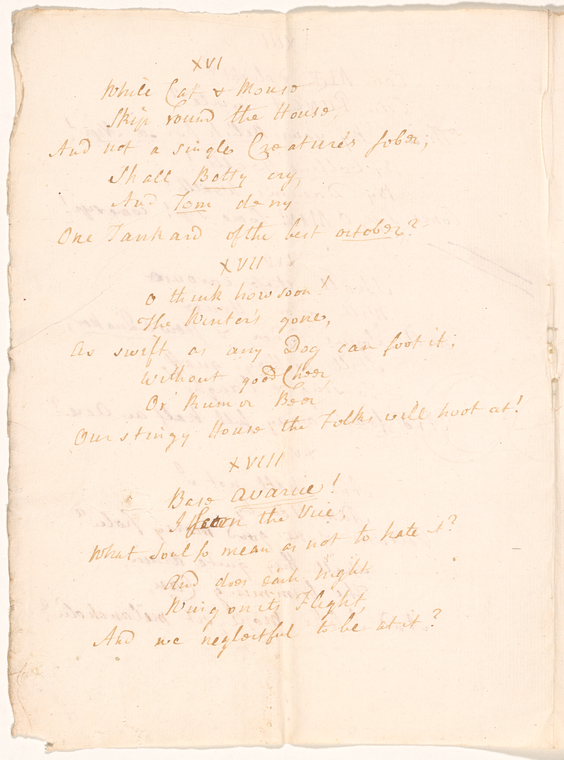 XVI
While Cat & Mouse
Skip round the House,
And not a single Creature's sober;
Shall Betty cry,
And Tom deny
One Tankard of the best october?
XVII
O think how soon!
The Winter's gone,
As swift as any Dog can foot it;
Without good Cheer,
Or Rum or Beer
Our stingy House the Folks will hoot at!
XVIII
Base avarice!
I scorn the Vice
What Soul so mean as not to hate it?
And does each night
Wing on its Flight,
And we neglectful to be at it?